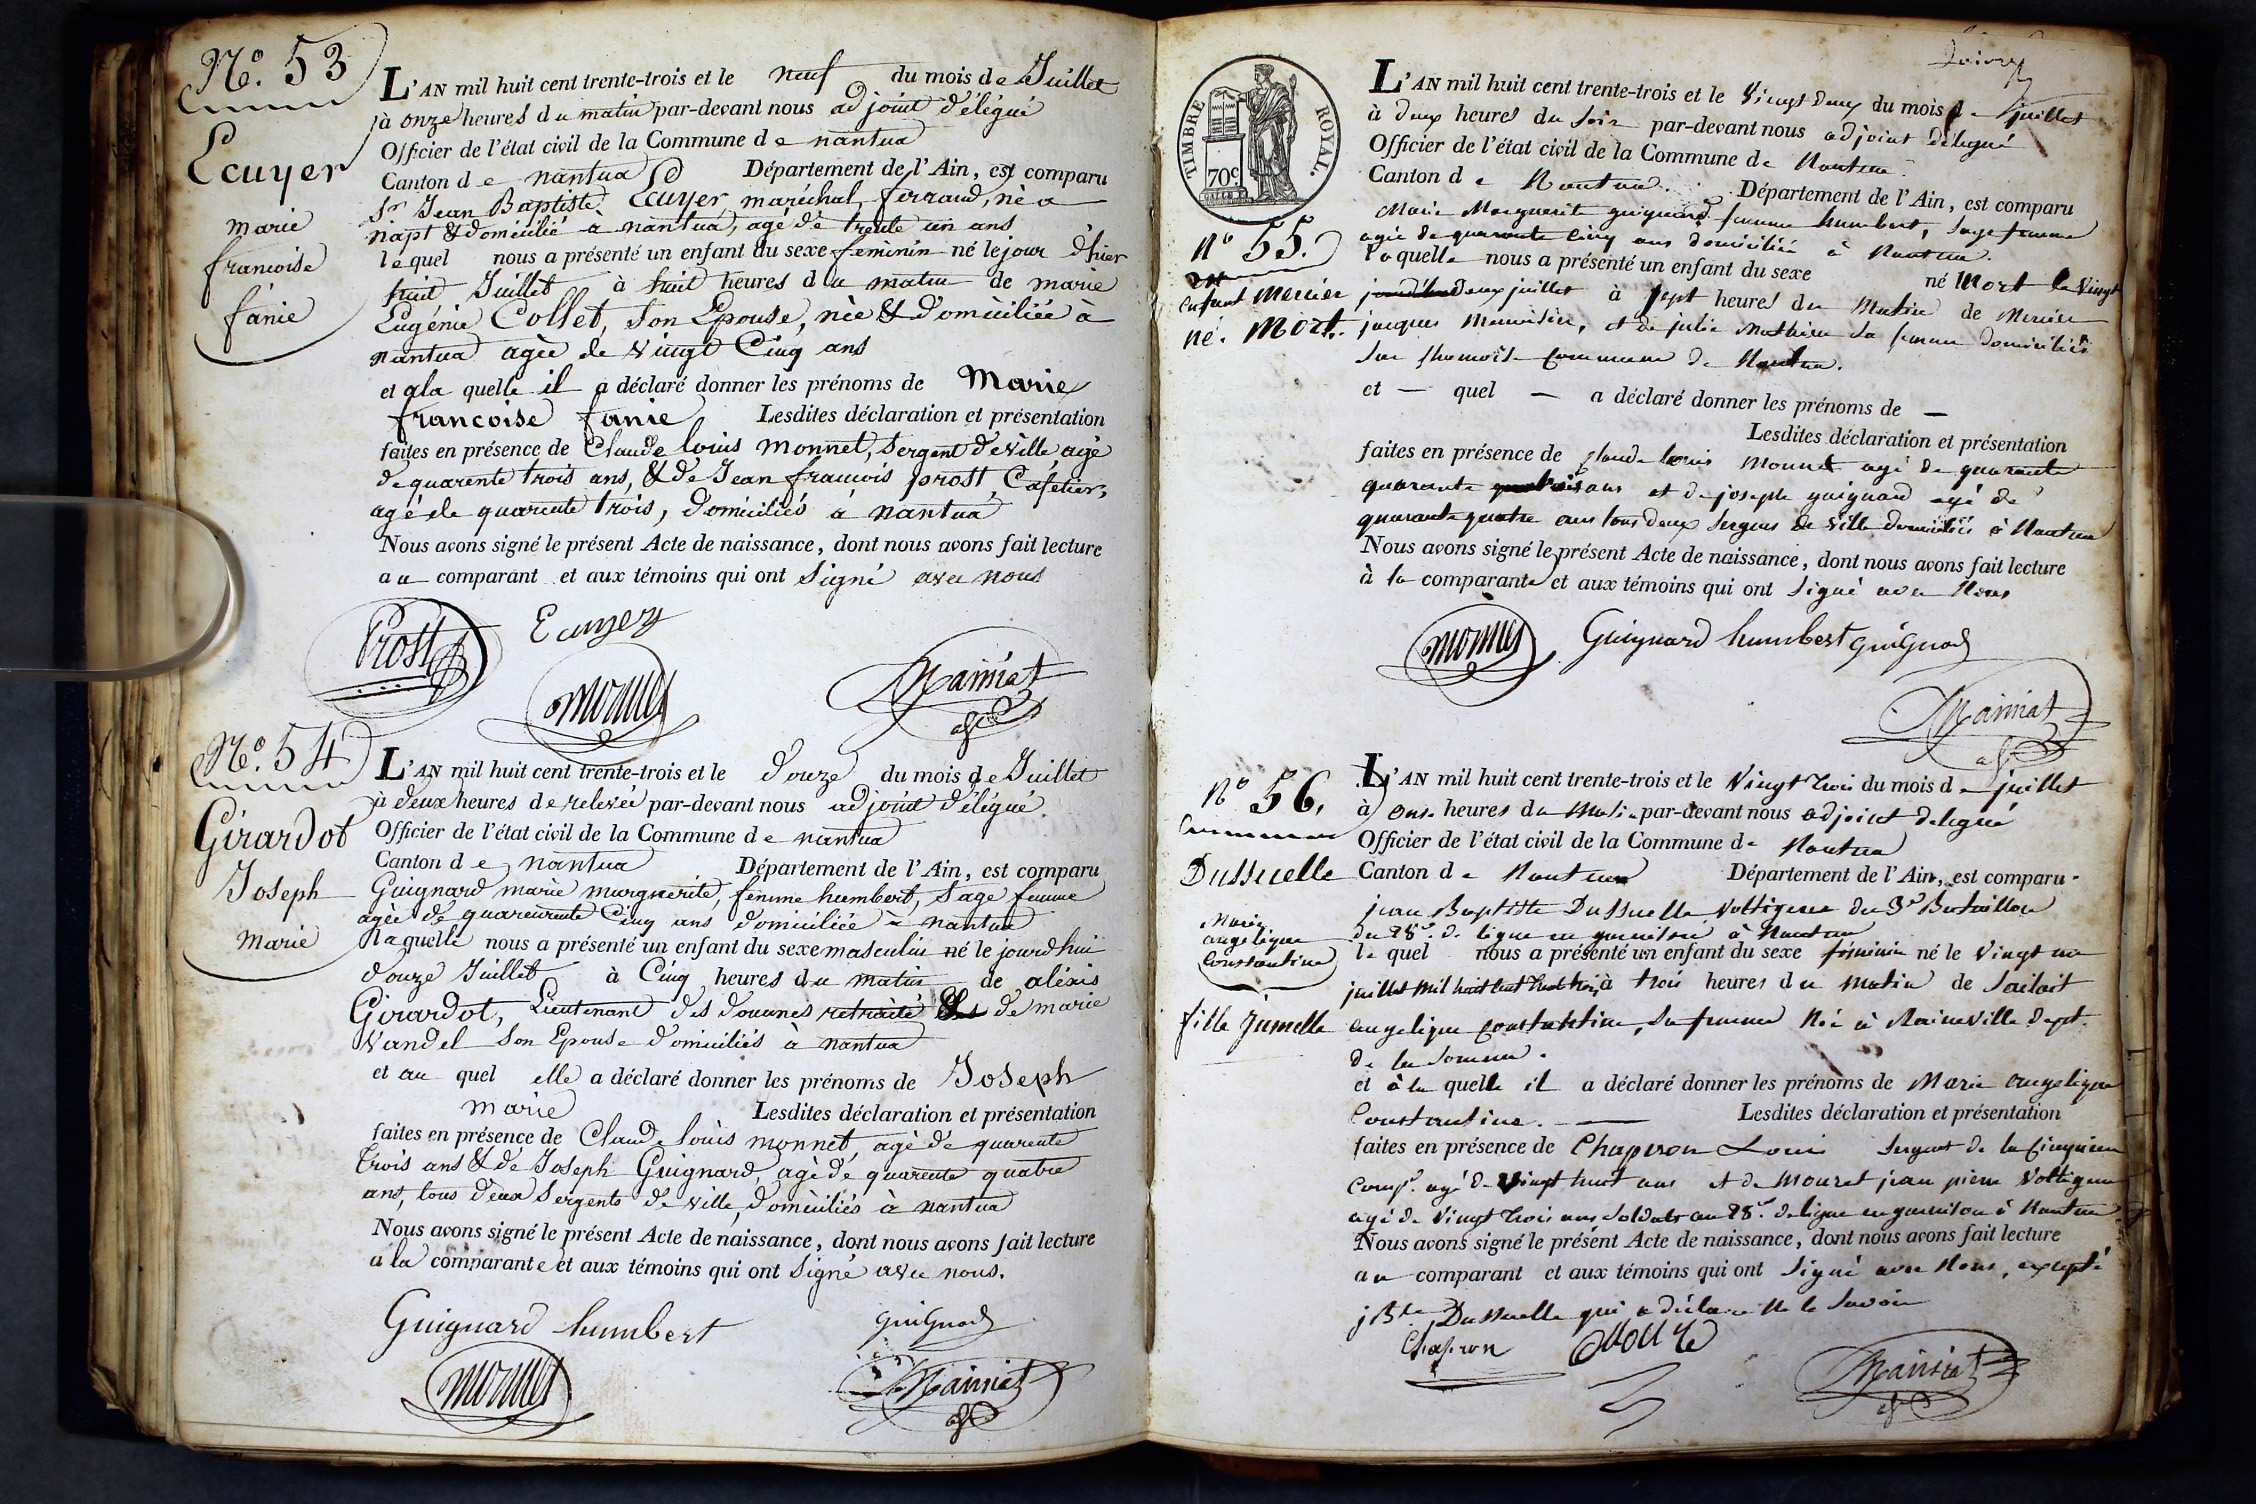 N.º 53
Ecuyer
marie
francoise
fanie
L'AN mil huit cent trente-trois et le neuf du mois de Juillet
à onze heures du matin par-devant nous adjoint délégué
Officier de l'état civil de la Commune de nantua
Canton de nantua Département de l'Ain, est comparu
Sr Jean Baptiste Ecuyer, maréchal, ferrand, né a
napt & domicilié à nantua, agé de trente un ans,
lequel nous a présenté un enfant du sexe feminin né le jour d'hier
huit Juillet à huit heures du matin de marie
Eugénie Collet, son Epouse, née & domiciliée à
nantua agée de vingt Cinq ans
et a la quelle il a déclaré donner les prénoms de Marie
francoise fanie Lesdites déclaration et présentation
faites en présence de Claude louis monnet, sergent de ville, agé
de quarente trois ans, & de Jean francois prost, Cafetier,
agé de quarente trois, domiciliés à nantua
Nous avons signé le présent Acte de naissance, dont nous avons fait lecture
au comparant et aux témoins qui ont signé avec nous
Prost Ecuyer
monnet
Mainiat
N.º 54
Girardot
Joseph
marie
L'AN mil huit cent trente-trois et le douze du mois de Juillet
à deux heures de relevée par-devant nous adjoint délégué
Officier de l'état civil de la Commune de nantua
Canton de nantua Département de l'Ain, est comparu
Guignard marie marguerite, femme humbert, sage femme
agée de quarente Cinq ans domiciliée à nantua
laquelle nous a présenté un enfant du sexe masculin né le jourdhui
douze Juillet à Cinq heures du matin de aléxis
Girardot, Lieutenant des douanes retraité & de marie
Vandel son Epouse domiciliés à nantua
et au quel elle a déclaré donner les prénoms de Joseph
marie Lesdites déclaration et présentation
faites en présence de Claude louis monnet, agé de quarente
trois ans & de Joseph Guignard, agé de quarente quatre
ans, tous deux Sergents de ville, domiciliés à nantua
Nous avons signé le présent Acte de naissance, dont nous avons fait lecture
a la comparante et aux témoins qui ont signé avec nous.
Guignard humbert guignard
monnet
Mainiat
TIMBRE ROYAL.
70c.
N.º 55.
enfant Mercier
né. Mort.
L'AN mil huit cent trente-trois et le vingt deux du mois de juillet
à deux heures du soir par-devant nous adjoint délegué
Officier de l'état civil de la Commune de Nantua
Canton de Nantua. Département de l'Ain, est comparu
Marie Marguerite guignard femme humbert, sage femme
agée de quarante cinq ans domiciliée à Nantua.
laquelle nous a présenté un enfant du sexe né Mort le vingt
deux juillet à sept heures du Matin de Mercier
jacques, et de julie Mathieu sa femme domiciliés
sur commune de Nantua.
et — quel — a déclaré donner les prénoms de —
Lesdites déclaration et présentation
faites en présence de Claude louis Monnet agé de quarante
quarante ans et de joseph guignard agé de
quarante quatre ans tous deux sergens de ville domiciliés à Nantua
Nous avons signé le présent Acte de naissance, dont nous avons fait lecture
à la comparante et aux témoins qui ont signé avec Nous
monnet Guignard humbert guignard
Mainiat
N.º 56.
Dussuelle
Marie
angelique
Constantine
fille Jumelle
L'AN mil huit cent trente-trois et le vingt trois du mois de juillet
à onze heures du Matin par-devant nous adjoint delegué
Officier de l'état civil de la Commune de Nantua
Canton de Nantua Département de l'Ain, est comparu
jean Baptiste Dussuelle voltigeur du 3e Bataillon
du 28e de ligne en garnison à Nantua
lequel nous a présenté un enfant du sexe féminin né le vingt un
juillet mil huit cent trente trois à trois heures du matin de
angelique constantine, sa femme née à Raineville dept.
de la Somme.
et à la quelle il a déclaré donner les prénoms de Marie angelique
Constantine. Lesdites déclaration et présentation
faites en présence de Chapron Louis sergent de la Cinquième
comp.e agé de vingt huit ans et de Mouret jean pierre voltigeur
agé de vingt trois ans soldats au 28e de ligne en garnison à Nantua
Nous avons signé le présent Acte de naissance, dont nous avons fait lecture
au comparant et aux témoins qui ont signé avec Nous, excepté
j Bte Dussuelle qui a déclaré ne le savoir
Chapron
Mainiat